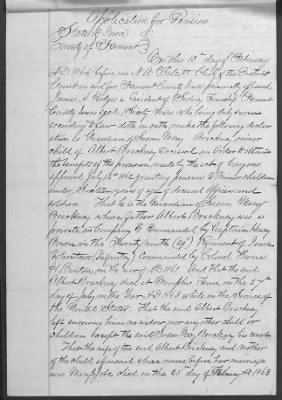 Application for Pension
State of Iowa
County of Fremont
On this 13th day of February
AD 1864 before me N. A. Clerk of the District
Court in and for Fremont County Iowa personally appeared
James A. Hodges a resident of Sidney Township Fremont
County Iowa aged Sixty Years who being duly sworn
according to Law doth on oath make the following declar
ation as Guardian of Susan Mary Brockway, minor
child of Albert Brockway deceased in order to obtain
the benefits of the provision made by the act of Congress
approved July 14th 1862 granting pensions to Minor children
under Sixteen years of age of deceased Officers and
soldiers. That he is the Guardian of Susan Mary
Brockway whose father Albert Brockway was a
private in Company E Commanded by Captain Henry
Bowen in the Twenty ninth (29th) Regiment of Iowa
Volunteers (Infantry) Commanded by Colonel Thomas
H. Benton, in the war of AD 1861. And that the said
Albert Brockway died at Memphis Tenn on the 27th
day of July in the Year AD 1863 while in the Service of
the United States. That the said Albert Brockway
left surviving him no widow nor any other child or
children except the said Susan Mary Brockway his
That the wife of the said Albert Brockway and mother
of the child aforesaid whose name before her marriage
was Mary died on the day of February AD 1863